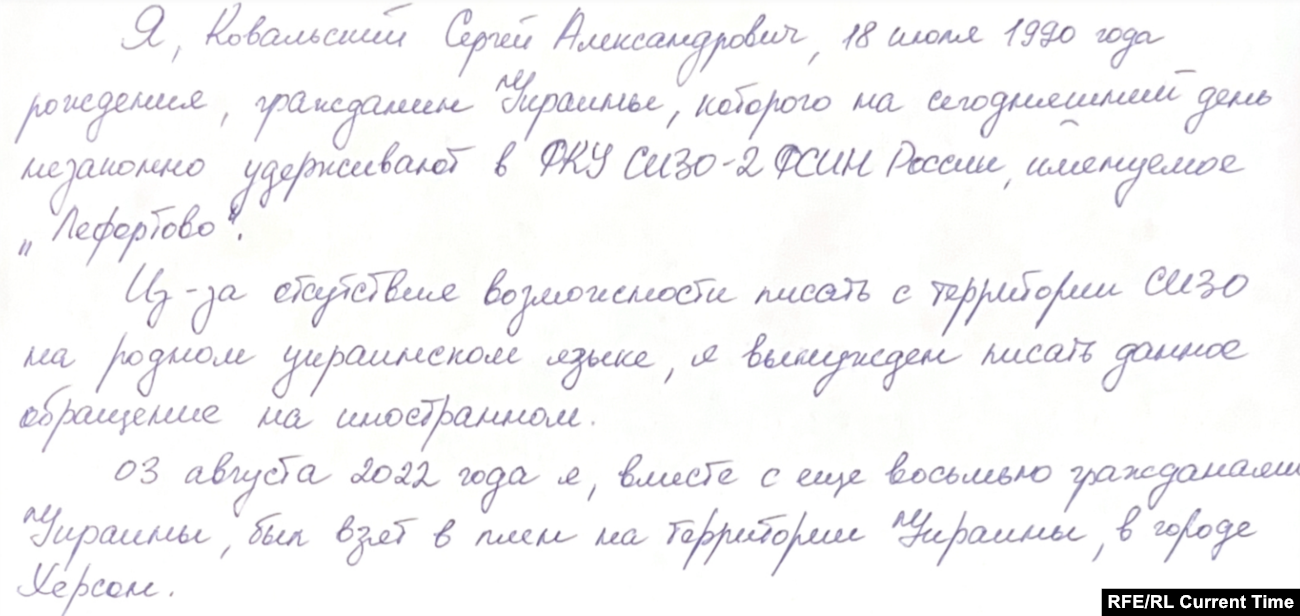 Я, Ковальский Сергей Александрович, 18 июля 1990 года
рождения, гражданин Украины, которого на сегодняшний день
незаконно удерживают в ФКУ СИЗО-2 ФСИН России, именуемое
„Лефортово".
Из-за отсутствия возможности писать с территории СИЗО
на родном украинском языке, я вынужден писать данное
обращение на иностранном.
03 августа 2022 года я, вместе с еще восьмью гражданами
Украины, был взят в плен на территории Украины, в городе
Херсон.
RFE/RL Current Time